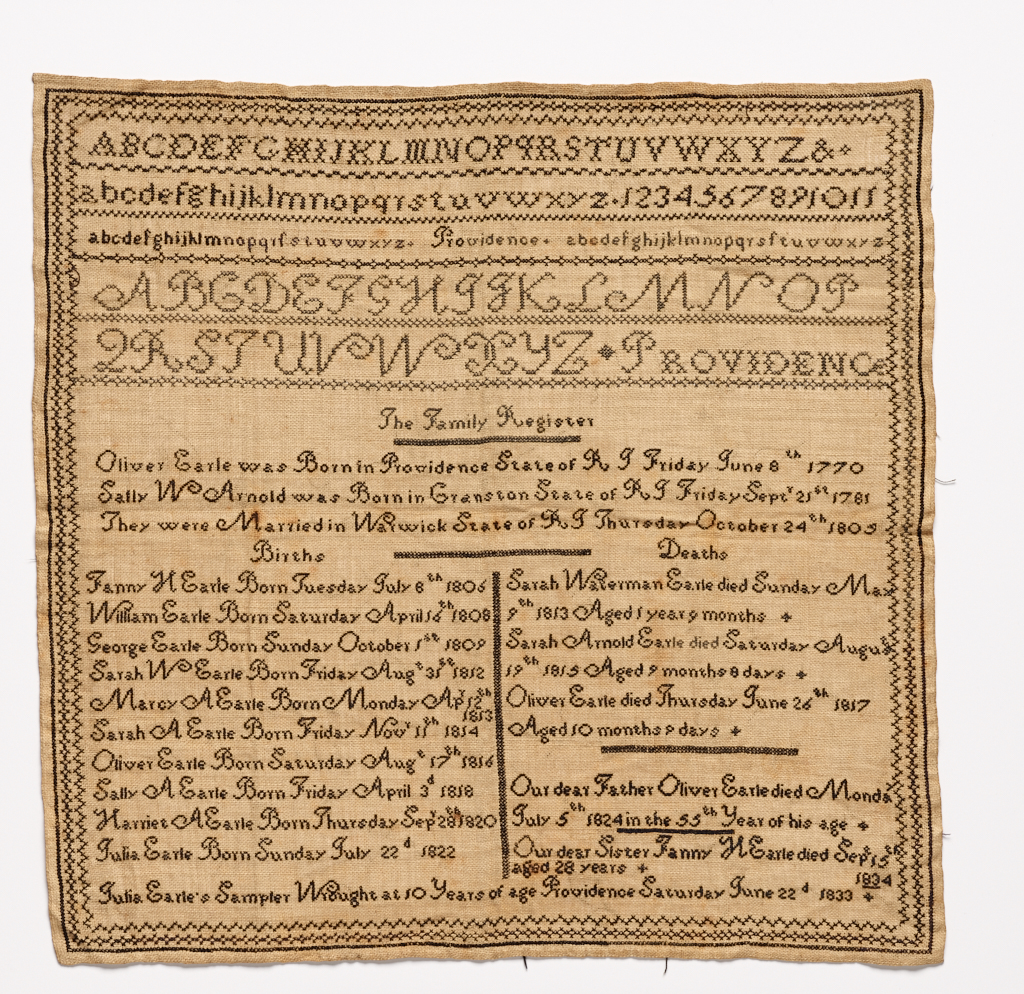 ABCDEFGHIJKLMNOPQRSTUVWXYZ&
abcdefghijklmnopqrstuvwxyz.1234567891011
abcdefghijklmnopqrſstuvwxyz. Providence. abcdefghijklmnopqrsftuvwxyz
ABCDEFGHIJKLMNOP
QRSTUVWXYZ PROVIDENCe
The Family Register
Oliver Earle was Born in Providence State of R I Friday June 8th 1770
Sally Wn Arnold was Born in Cranston State of R I Friday Septr 21st 1781
They were Married in Warwick State of R I Thursday October 24th 1805
Births
Deaths
Fanny H Earle Born Tuesday July 8th 1806
William Earle Born Saturday April 16th 1808
George Earle Born Sunday October 1st 1809
Sarah Wn Earle Born Friday Augt 31st 1812
Marcy A Earle Born Monday Apr 12th
1813
Sarah A Earle Born Friday Novr 11th 1814
Oliver Earle Born Saturday Augt 17th 1816
Sally A Earle Born Friday April 3d 1818
Harriet A Earle Born Thursday Sepr 28th 1820
Julia Earle Born Sunday July 22d 1822
Sarah Waterman Earle died Sunday May
9th 1813 Aged 1 year 9 months +
Sarah Arnold Earle died Saturday August
19th 1815 Aged 9 months 8 days +
Oliver Earle died Thursday June 26th 1817
Aged 10 months 9 days +
Our dear Father Oliver Earle died Monda
July 5th 1824 in the 55th Year of his age +
Our dear Sister Fanny H Earle died Sept 15th
1834
aged 28 years +
Julia Earle's Sampler Wrought at 10 Years of age Providence Saturday June 22d 1833 +